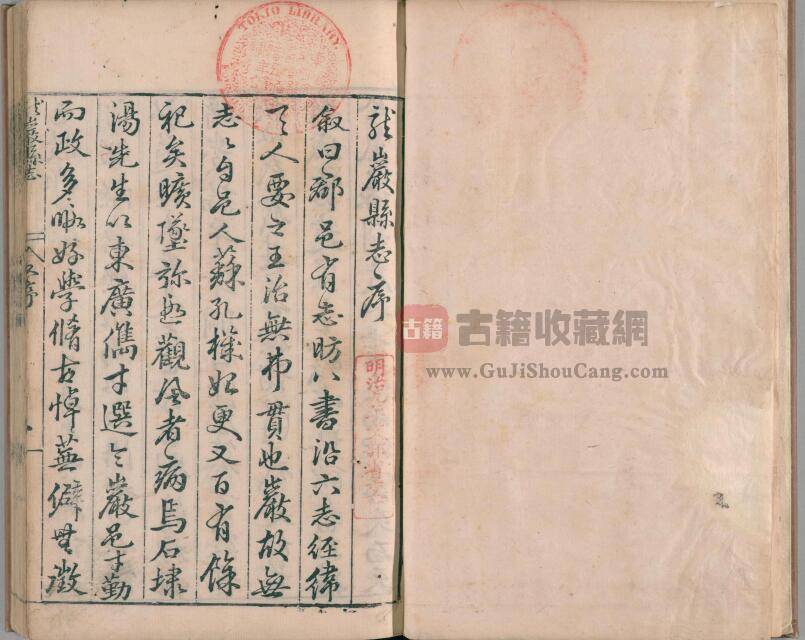 龍巖縣志序
叙曰郡邑有志昉八書沿六志經緯
天人要之王治無弗貫也巖故無
志志自邑人蘇孔機始更又百有餘
祀矣曠墜弥甚觀風者病焉石埭
湯先生以東廣儁才選令巖邑才勤
而政多暇好學脩古悼蕪僻無徵
巖縣志
TOIJO LIBRARY
明治
古籍
古籍收藏網
www.GuJiShouCang.com